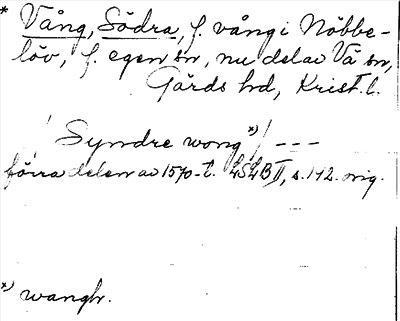 * Vång, Södra, f. vång i Nöbbe-
löv, f. egen sn, nu del av Vä sn,
Gärds hd, Krist. l.
/ Syndre wong *) / ---
förra delen av 1570-t. LSLB II, s. 142. orig.
*) wangh.